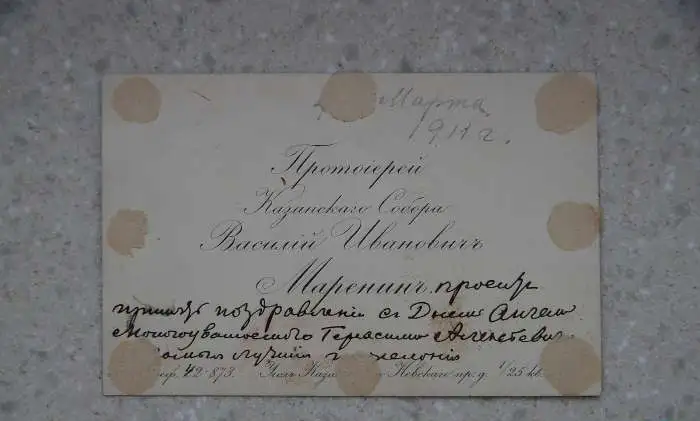 Марта
1911 г.
Протоіерей
Казанскаго Собора
Василій Ивановичъ
Маренинъ. проситъ
принять поздравленіе съ Днемъ Ангела
Многоуважаемого Герасима
лучшія
42-873. Уголъ Каза Невскаго пр. д. 1/25 кв.